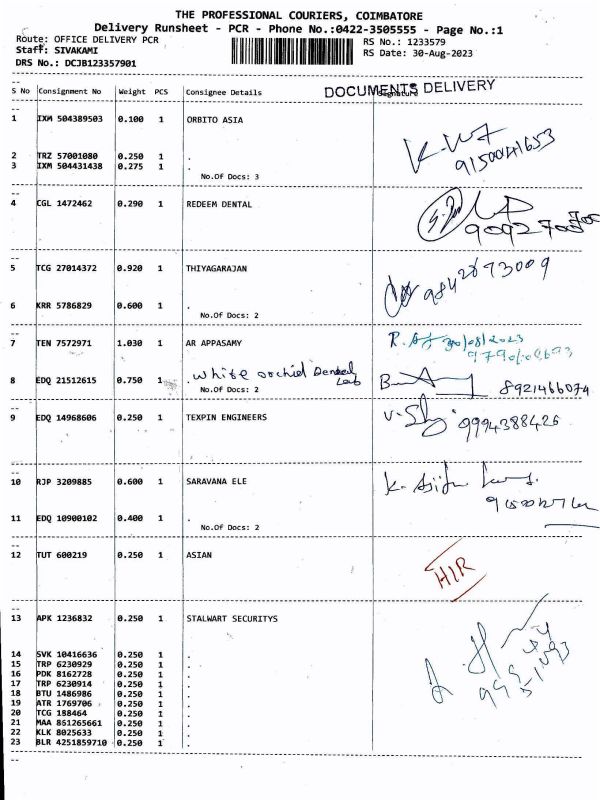 THE PROFESSIONAL COURIERS, COIMBATORE
Delivery Runsheet - PCR - Phone No.:0422-3505555 - Page No.:1
Route: OFFICE DELIVERY PCR
Staff: SIVAKAMI
DRS No.: DCJB123357901
RS No.: 1233579
RS Date: 30-Aug-2023
DOCUMENTS DELIVERY
S No Consignment No Weight PCS Consignee Details Signature
1 IXM 504389503 0.100 1 ORBITO ASIA
9150041653
2 TRZ 57001080 0.250 1 .
3 IXM 504431438 0.275 1 .
No.Of Docs: 3
4 CGL 1472462 0.290 1 REDEEM DENTAL
5 TCG 27014372 0.920 1 THIYAGARAJAN
9842073009
6 KRR 5786829 0.600 1 .
No.Of Docs: 2
7 TEN 7572971 1.030 1 AR APPASAMY
30/08/2023
8 EDQ 21512615 0.750 1 . white orchid Dental Lab
No.Of Docs: 2
8921466074
9 EDQ 14968606 0.250 1 TEXPIN ENGINEERS
9994388426
10 RJP 3209885 0.600 1 SARAVANA ELE
11 EDQ 10900102 0.400 1 .
No.Of Docs: 2
12 TUT 600219 0.250 1 ASIAN
13 APK 1236832 0.250 1 STALWART SECURITYS
14 SVK 10416636 0.250 1 .
15 TRP 6230929 0.250 1 .
16 PDK 8162728 0.250 1 .
17 TRP 6230914 0.250 1 .
18 BTU 1486986 0.250 1 .
19 ATR 1769706 0.250 1 .
20 TCG 188464 0.250 1 .
21 MAA 861265661 0.250 1 .
22 KLK 8025633 0.250 1 .
23 BLR 4251859710 0.250 1 .